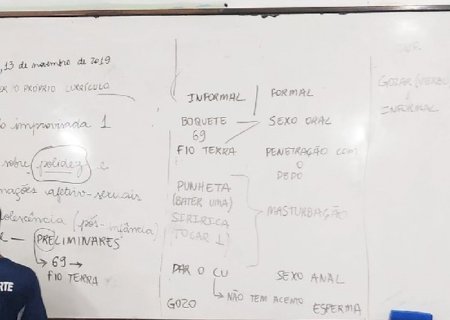 , 13 de novembro de 2019
ER O PRÓPRIO CURRÍCULO
improvisada 1
sobre polidez e
mações afetivo-sexuais
olescência (pós-infância)
e — PRELIMINARES
↳ 69 →
FIO TERRA
INFORMAL
FORMAL
BOQUETE
69
SEXO ORAL
FIO TERRA
PENETRAÇÃO COM
O
DEDO
PUNHETA
(BATER UMA)
SIRIRICA
TOCAR 1
MASTURBAÇÃO
DAR O CU
SEXO ANAL
↳ NÃO TEM ACENTO
GOZO
ESPERMA
GOZAR (VERBO)
↓
INFORMAL
RTE